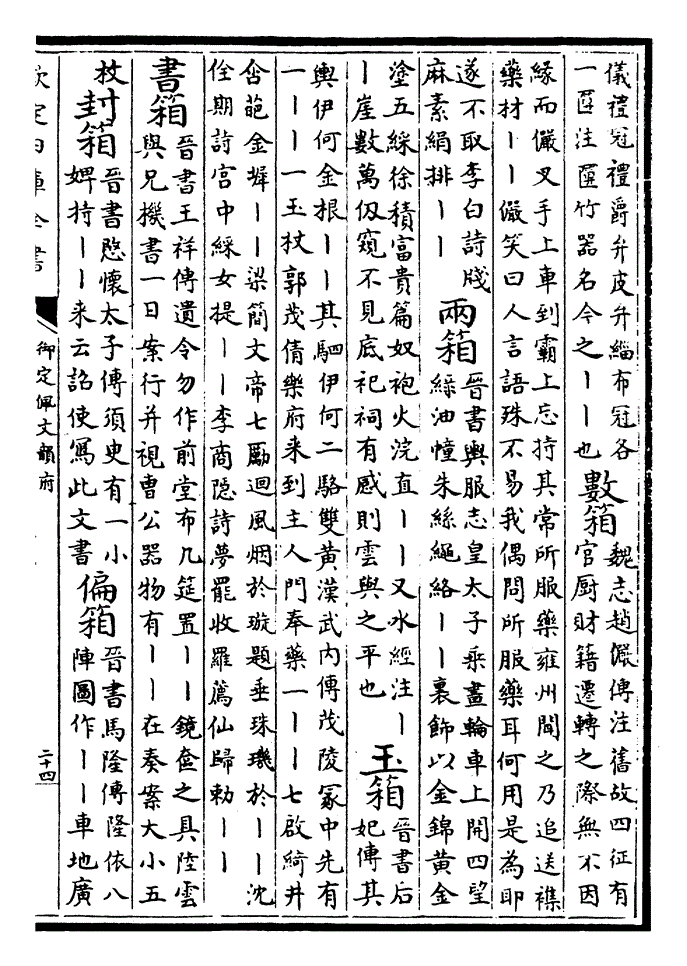 儀禮冠禮爵弁皮弁緇布冠各
一匴注匴竹器名今之丨丨也
數箱
魏志趙儼傳注舊故四征有
官厨財籍遷轉之際無不因
緣而儼叉手上車到霸上忘持其常所服藥雍州聞之乃追送襍
藥材丨丨儼笑曰人言語殊不易我偶問所服藥耳何用是為即
遂不取李白詩牋
麻素絹排丨丨
兩箱
晉書輿服志皇太子乘畫輪車上開四望
綠油幢朱絲繩絡丨丨裏飾以金錦黃金
塗五綵徐積富貴篇奴袍火浣直丨丨又水經注丨
丨崖數萬仭窺不見底祀祠有感則雲與之平也
玉箱
晉書后
妃傳其
輿伊何金根丨丨其駟伊何二駱雙黃漢武內傳茂陵冢中先有
一丨丨一玉杖郭茂倩樂府来到主人門奉藥一丨丨七啟綺井
含葩金墀丨丨梁簡文帝七勵迴風烟於璇題垂珠璣於丨丨沈
佺期詩宮中綵女提丨丨李商隐詩夢罷收羅薦仙歸勅丨丨
書箱
晉書王祥傳遺令勿作前堂布几筵置丨丨鏡奩之具陸雲
與兄機書一日案行并視曹公器物有丨丨在奏案大小五
枚
封箱
晉書愍懷太子傳須臾有一小
婢持丨丨来云詔使寫此文書
偏箱
晉書馬隆傳隆依八
陣圖作丨丨車地廣
欽定四庫全書
御定佩文韻府
二十四